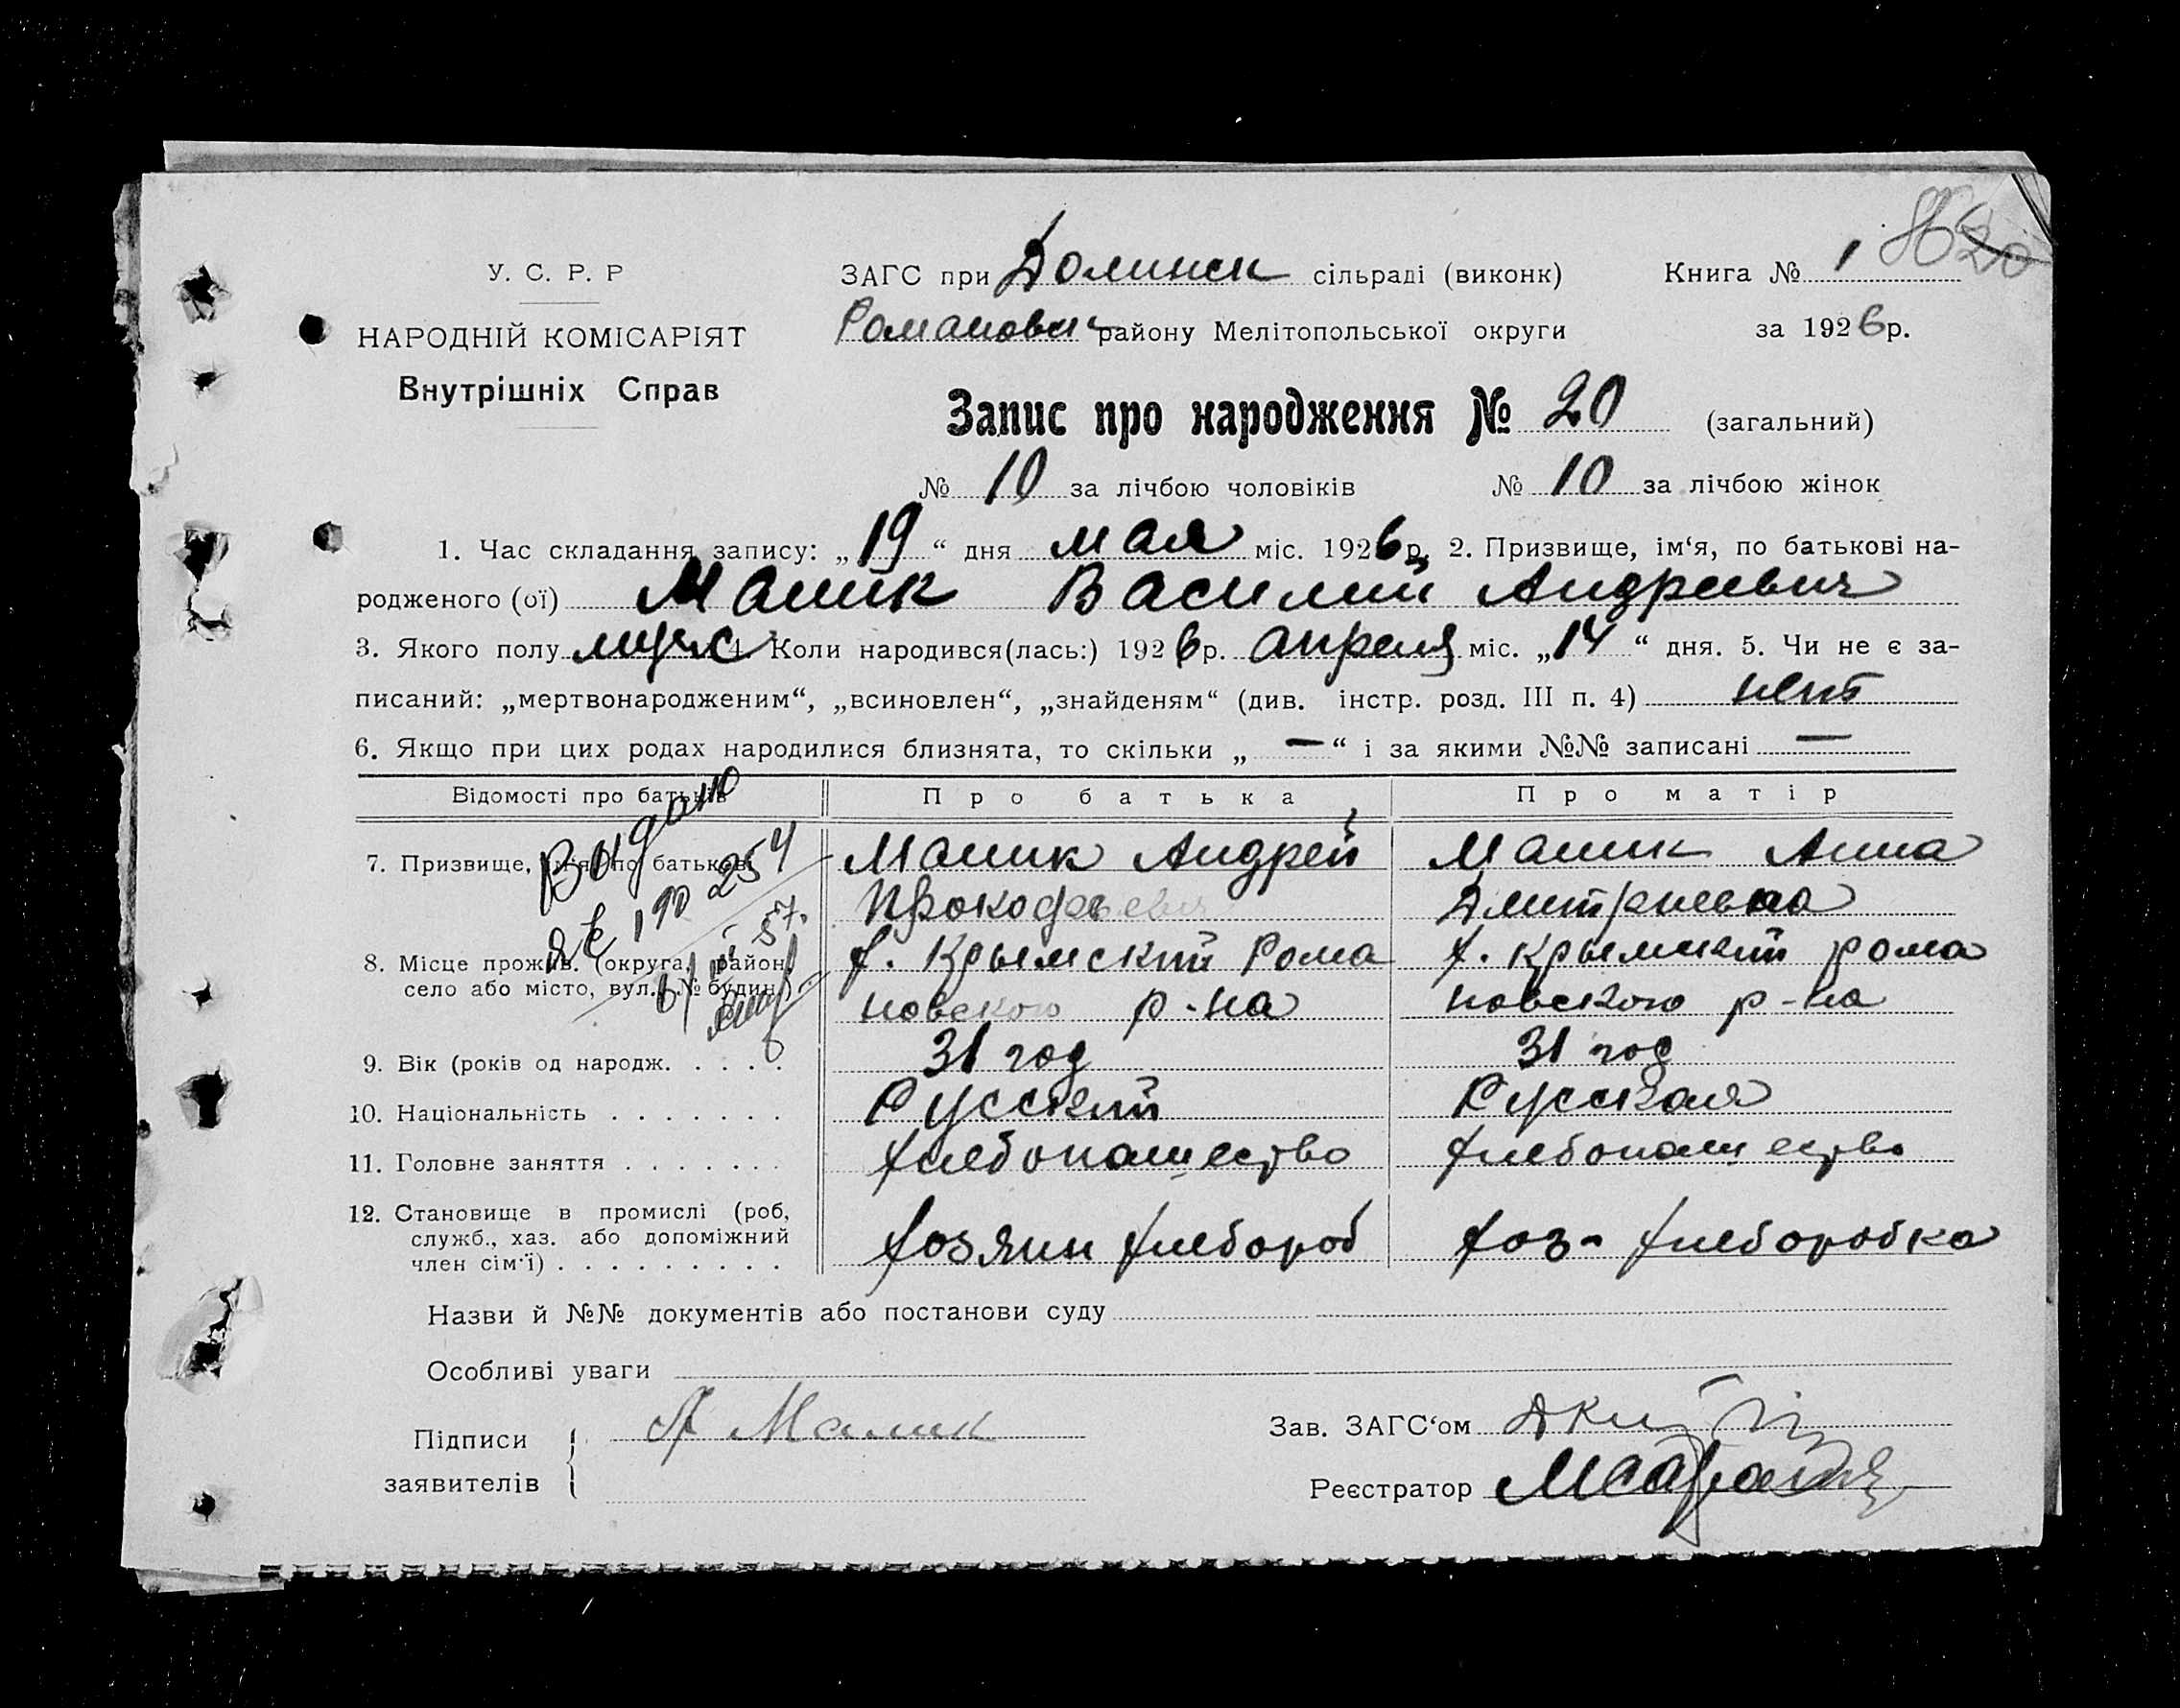 У. С. Р. Р
НАРОДНІЙ КОМІСАРІЯТ
Внутрішніх Справ
ЗАГС при Долинск сільраді (виконк)
Романовск району Мелітопольської округи
Книга № 1
20
за 1926 р.
Запис про народження № 20 (загальний)
№ 10 за лічбою чоловіків № 10 за лічбою жінок
1. Час складання запису: „19“ дня мая міс. 1926 р. 2. Призвище, ім‘я, по батькові на-
родженого (ої) Малик Василий Андреевич
3. Якого полу муж 4. Коли народився(лась:) 1926 р. апреля міс. „14“ дня. 5. Чи не є за-
писаний: „мертвонародженим“, „всиновлен“, „знайденям“ (див. інстр. розд. III п. 4) нет
6. Якщо при цих родах народилися близнята, то скільки „ — “ і за якими №№ записані —
Відомості про батьків Про батька Про матір
Выдано
ЯЕ 190254
57.
7. Призвище, ім‘я, по батькові Малик Андрей Малик Анна
Прокофьевич Дмитриевна
8. Місце прожив. (округа, район, х. Крымский Рома х. Крымский Рома
село або місто, вул. № будин.) новского р-на новского р-на
9. Вік (років од народж. . . . . 31 год 31 год
10. Національність . . . . . . . Русский Русская
11. Головне заняття . . . . . . . хлебопашество хлебопашество
12. Становище в промислі (роб, служб., хаз. або допоміжний член сім‘ї) . . . . . . . . . хозяин хлебороб хоз- хлеборобка
Назви й №№ документів або постанови суду
Особливі уваги
Підписи заявителів А Малик
Зав. ЗАГС‘ом
Реєстратор